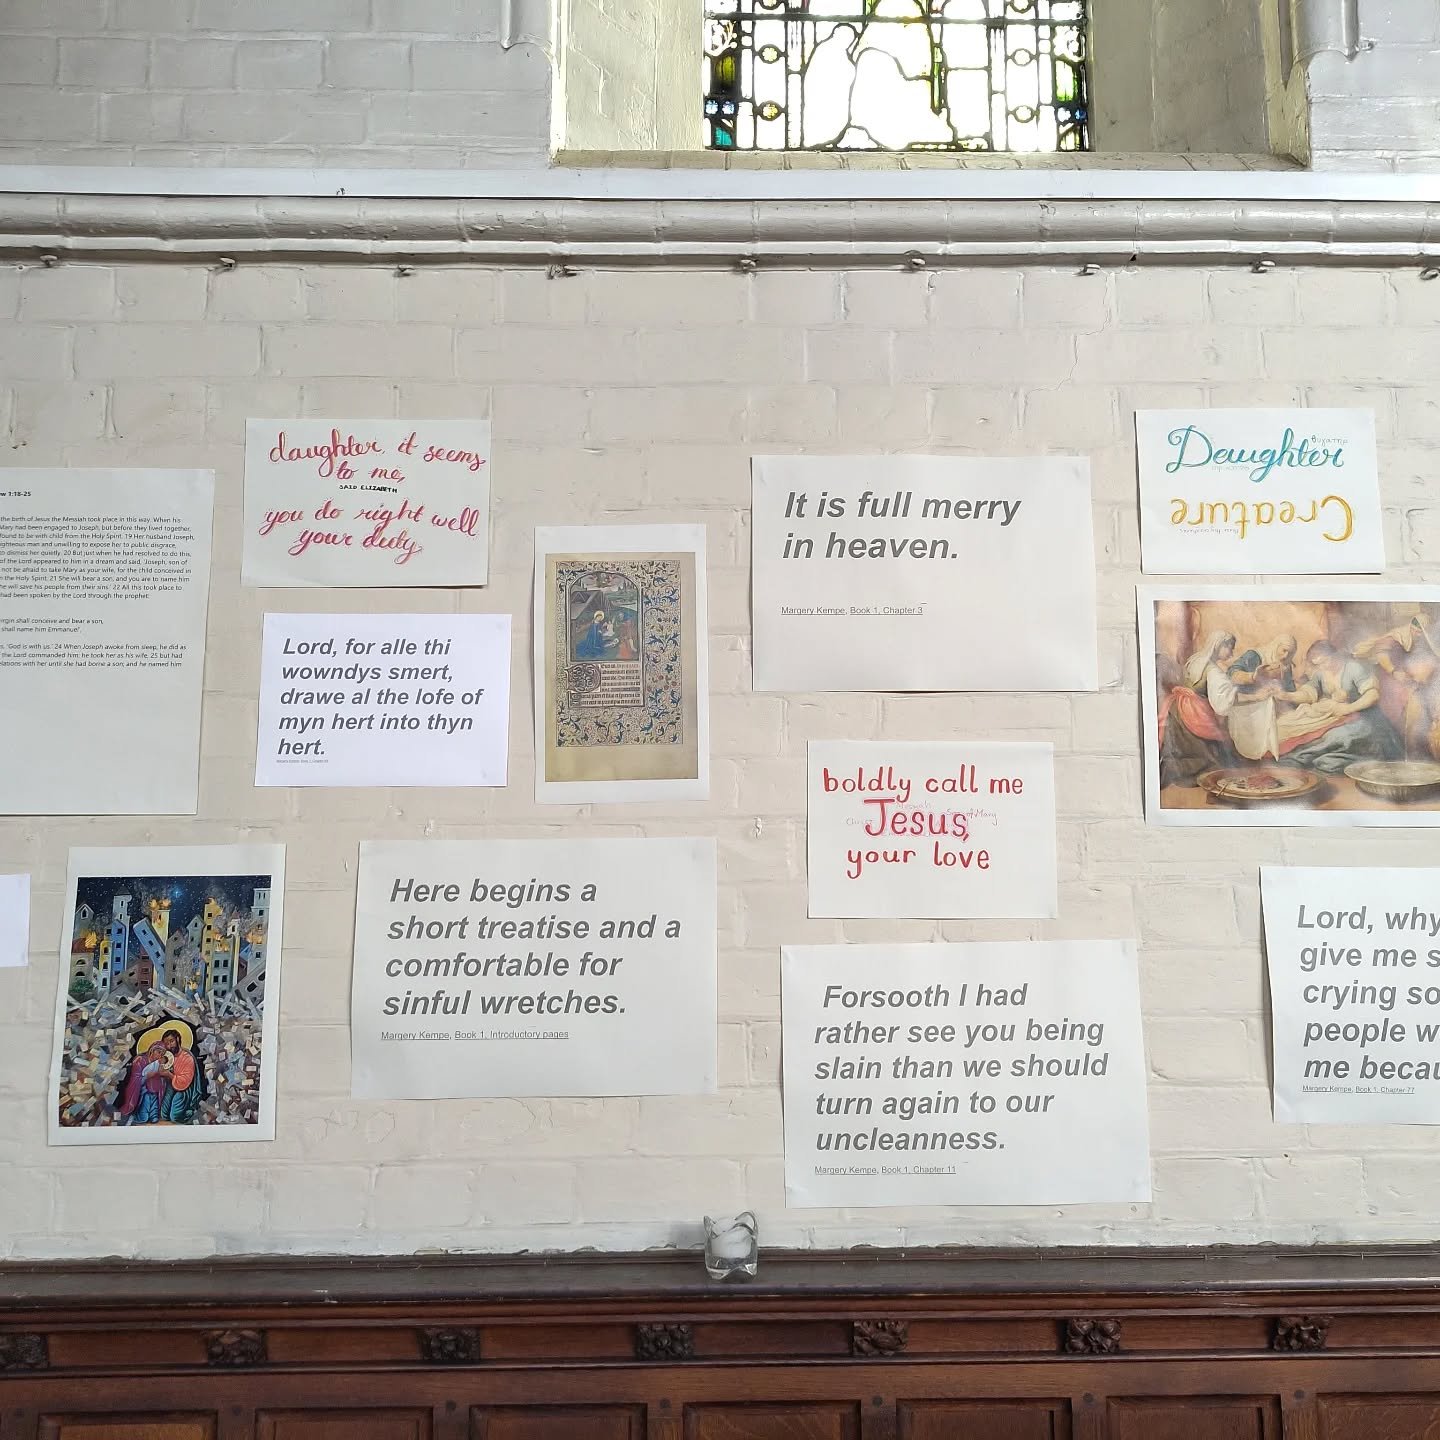 w 1:18-25
the birth of Jesus the Messiah took place in this way. When his
Mary had been engaged to Joseph, but before they lived together,
found to be with child from the Holy Spirit. 19 Her husband Joseph,
ighteous man and unwilling to expose her to public disgrace,
to dismiss her quietly. 20 But just when he had resolved to do this,
of the Lord appeared to him in a dream and said, 'Joseph, son of
not be afraid to take Mary as your wife, for the child conceived in
the Holy Spirit. 21 She will bear a son, and you are to name him
he will save his people from their sins.' 22 All this took place to
had been spoken by the Lord through the prophet:
virgin shall conceive and bear a son,
shall name him Emmanuel',
s, 'God is with us.' 24 When Joseph awoke from sleep, he did as
the Lord commanded him; he took her as his wife, 25 but had
elations with her until she had borne a son; and he named him
daughter, it seems
to me,
SAID ELIZABETH
you do right well
your duty
Lord, for alle thi
wowndys smert,
drawe al the lofe of
myn hert into thyn
hert.
Here begins a
short treatise and a
comfortable for
sinful wretches.
Margery Kempe, Book 1, Introductory pages
It is full merry
in heaven.
Margery Kempe, Book 1, Chapter 3
boldly call me
Messiah
Christ
Jesus,
Son of Mary
your love
Forsooth I had
rather see you being
slain than we should
turn again to our
uncleanness.
Margery Kempe, Book 1, Chapter 11
Daughter
θυγατηρ
Creature
Lord, why
give me s
crying so
people w
me becau
Margery Kempe, Book 1, Chapter 77